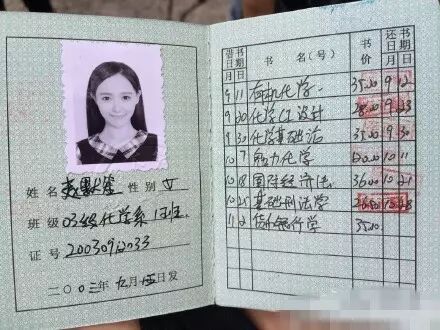 姓名 麦默笙 性别 女
班级 03级化学系1班
证号 200309033
二〇〇三年九月 日发
借书日期 月 日 书名(号) 书价 还书日期 月 日
9 11 有机化学 35.00 9 12
9 20 化学CI设计 9 23
9 30 化学基础论 9 30
10 7 化学 10 11
10 18 国际经济法 36.00 10 21
10 25 基础刑法学 10 28
11 2 货币银行学 35.00